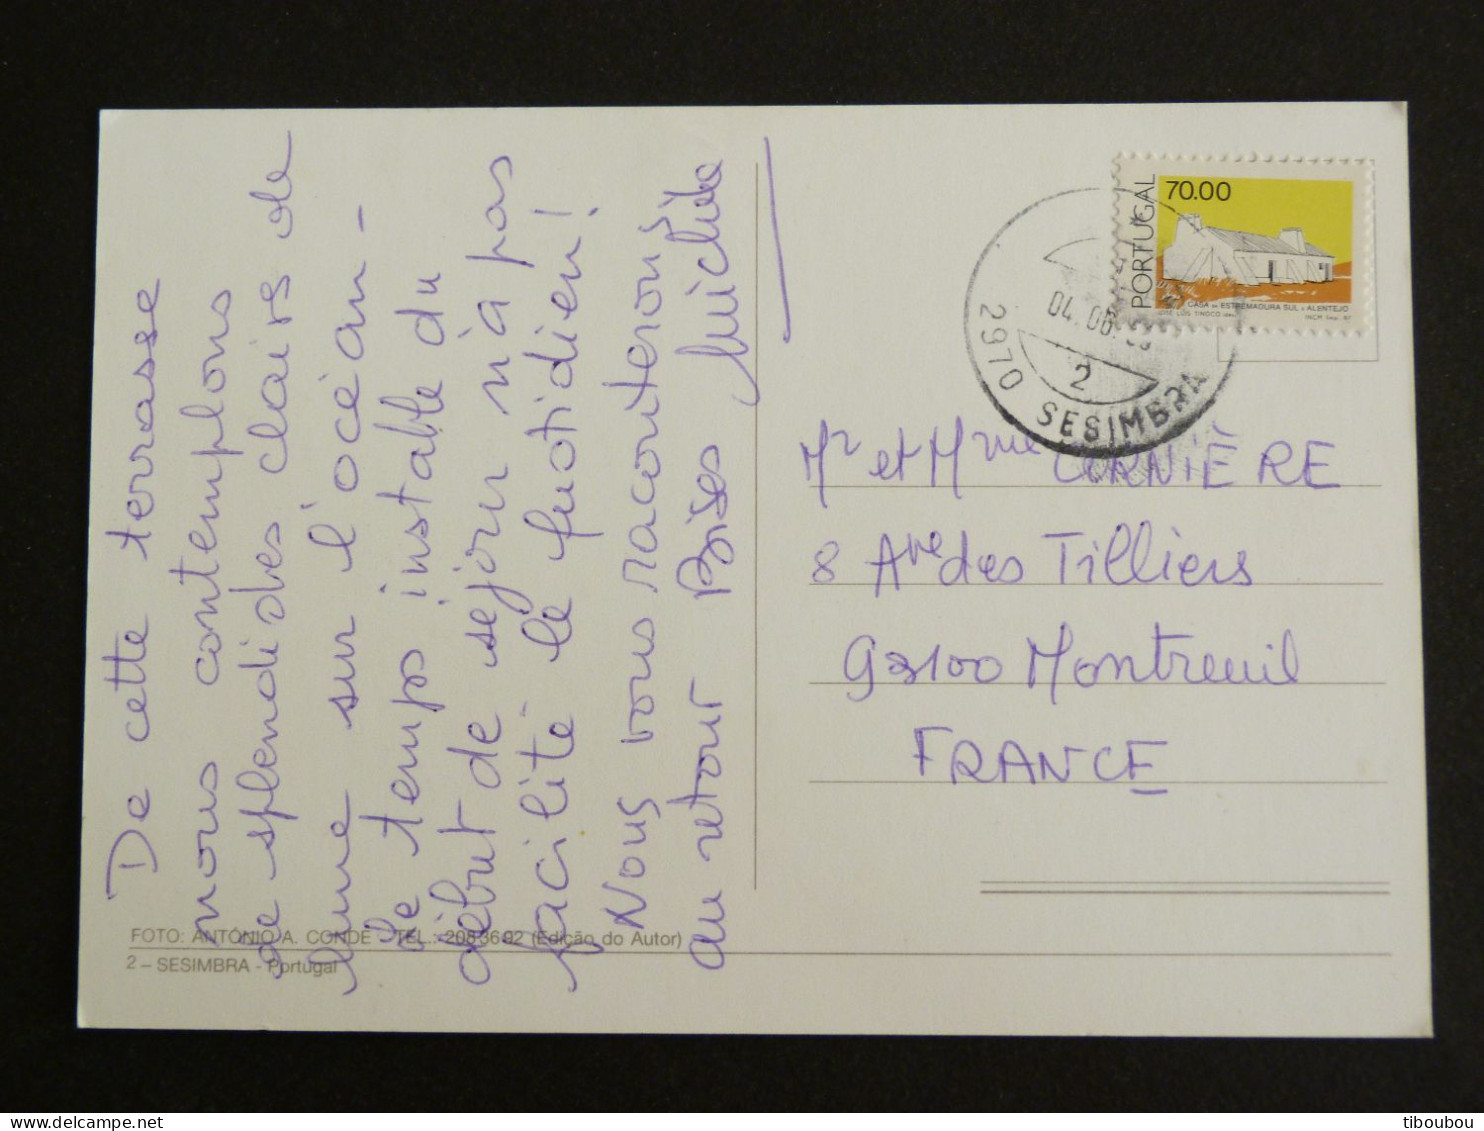 De cette terrasse
nous contemplons
de splendides clairs de
lune sur l'océan -
Le temps instable du
début de sejour n'a pas
facilité le quotidien!
Nous vous raconterons
au retour Bises Michèle
FOTO: ANTÓNIO A. CONDE - TEL.: 2083692 (Edição do Autor)
2 – SESIMBRA - Portugal
PORTUGAL
70.00
CASA DA ESTREMADURA SUL E ALENTEJO
JOSÉ LUÍS TINOCO
INCM
04.06.
2970 SESIMBRA
2
Mr et Mme CORNIÈRE
8 Ave des Tilliers
93100 Montreuil
FRANCE
tiboubou